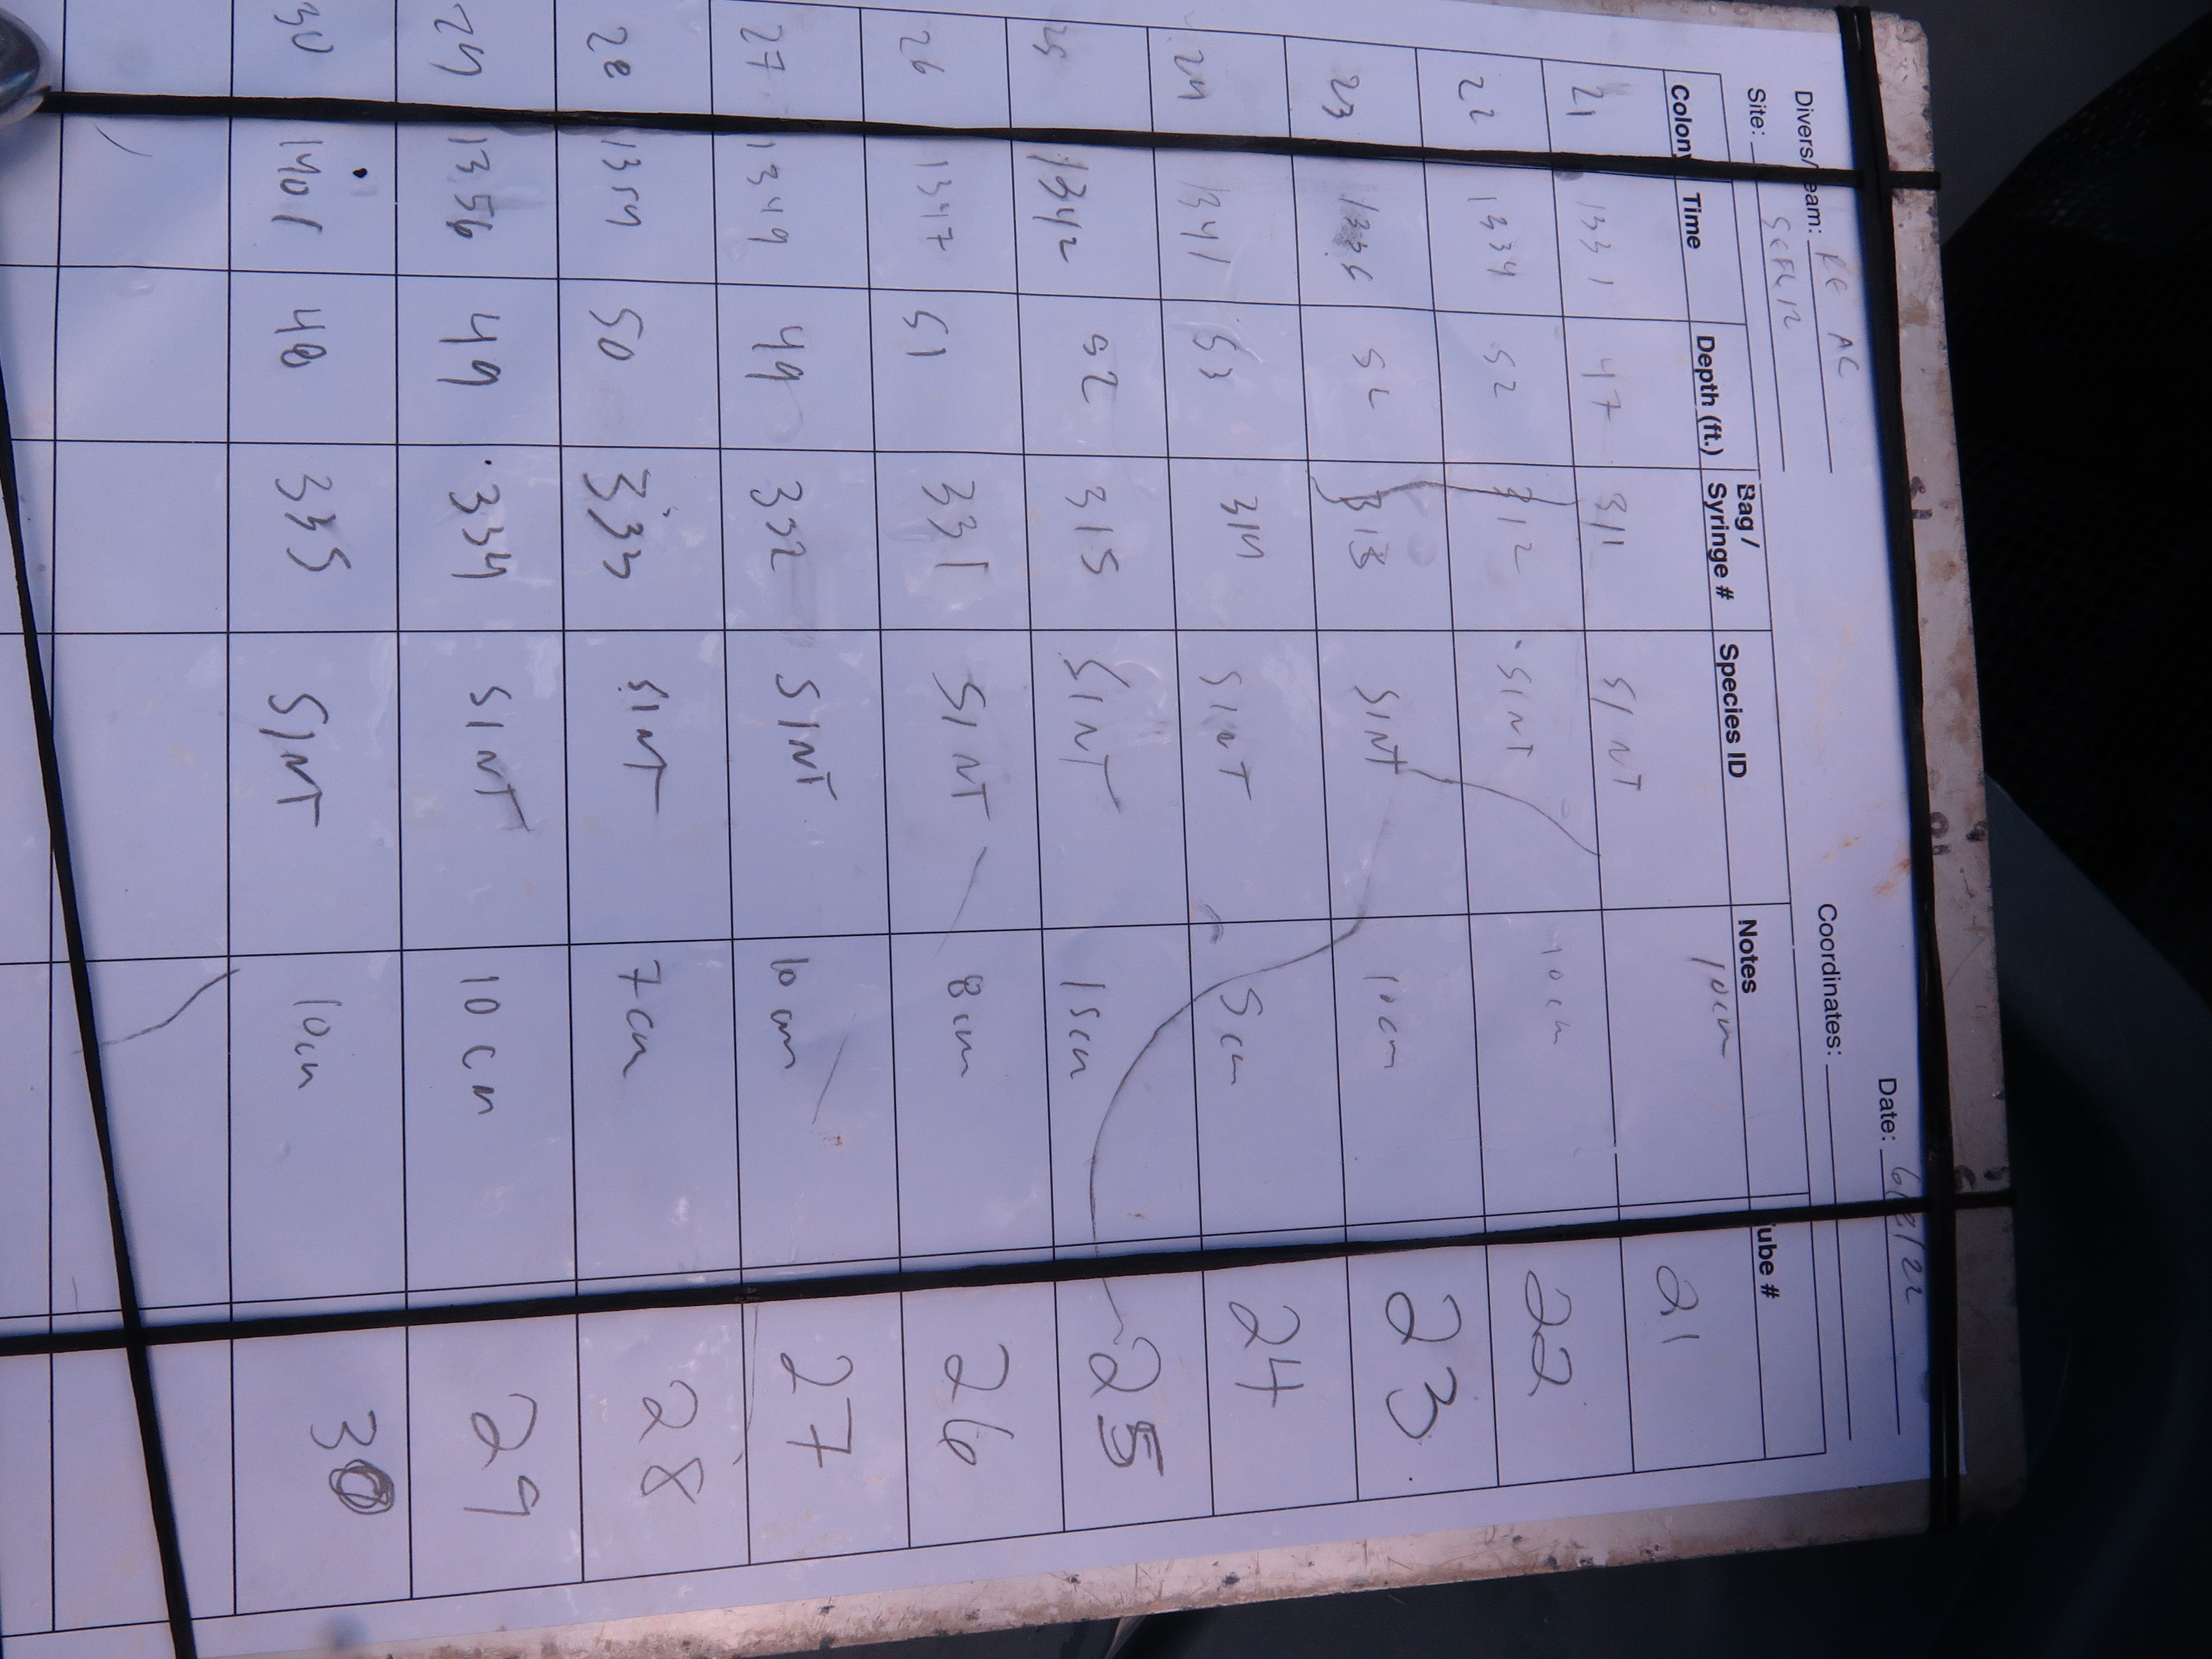 Date: 6/8/22
Divers/Team: RE AC
Coordinates:
Site: SEFL12
Colony Time Depth (ft.) Bag / Syringe # Species ID Notes Tube #
21 1331 47 311 SINT 10cm 21
22 1334 52 312 SINT 10cm 22
23 1336 52 313 SINT 10cm 23
24 1341 53 314 SINT 5cm 24
25 1342 52 315 SINT 15cm 25
26 1347 51 331 SINT 8cm 26
27 1349 49 332 SINT 10cm 27
28 1354 50 333 SINT 7cm 28
29 1356 49 334 SINT 10cm 29
30 1401 48 335 SINT 10cm 30